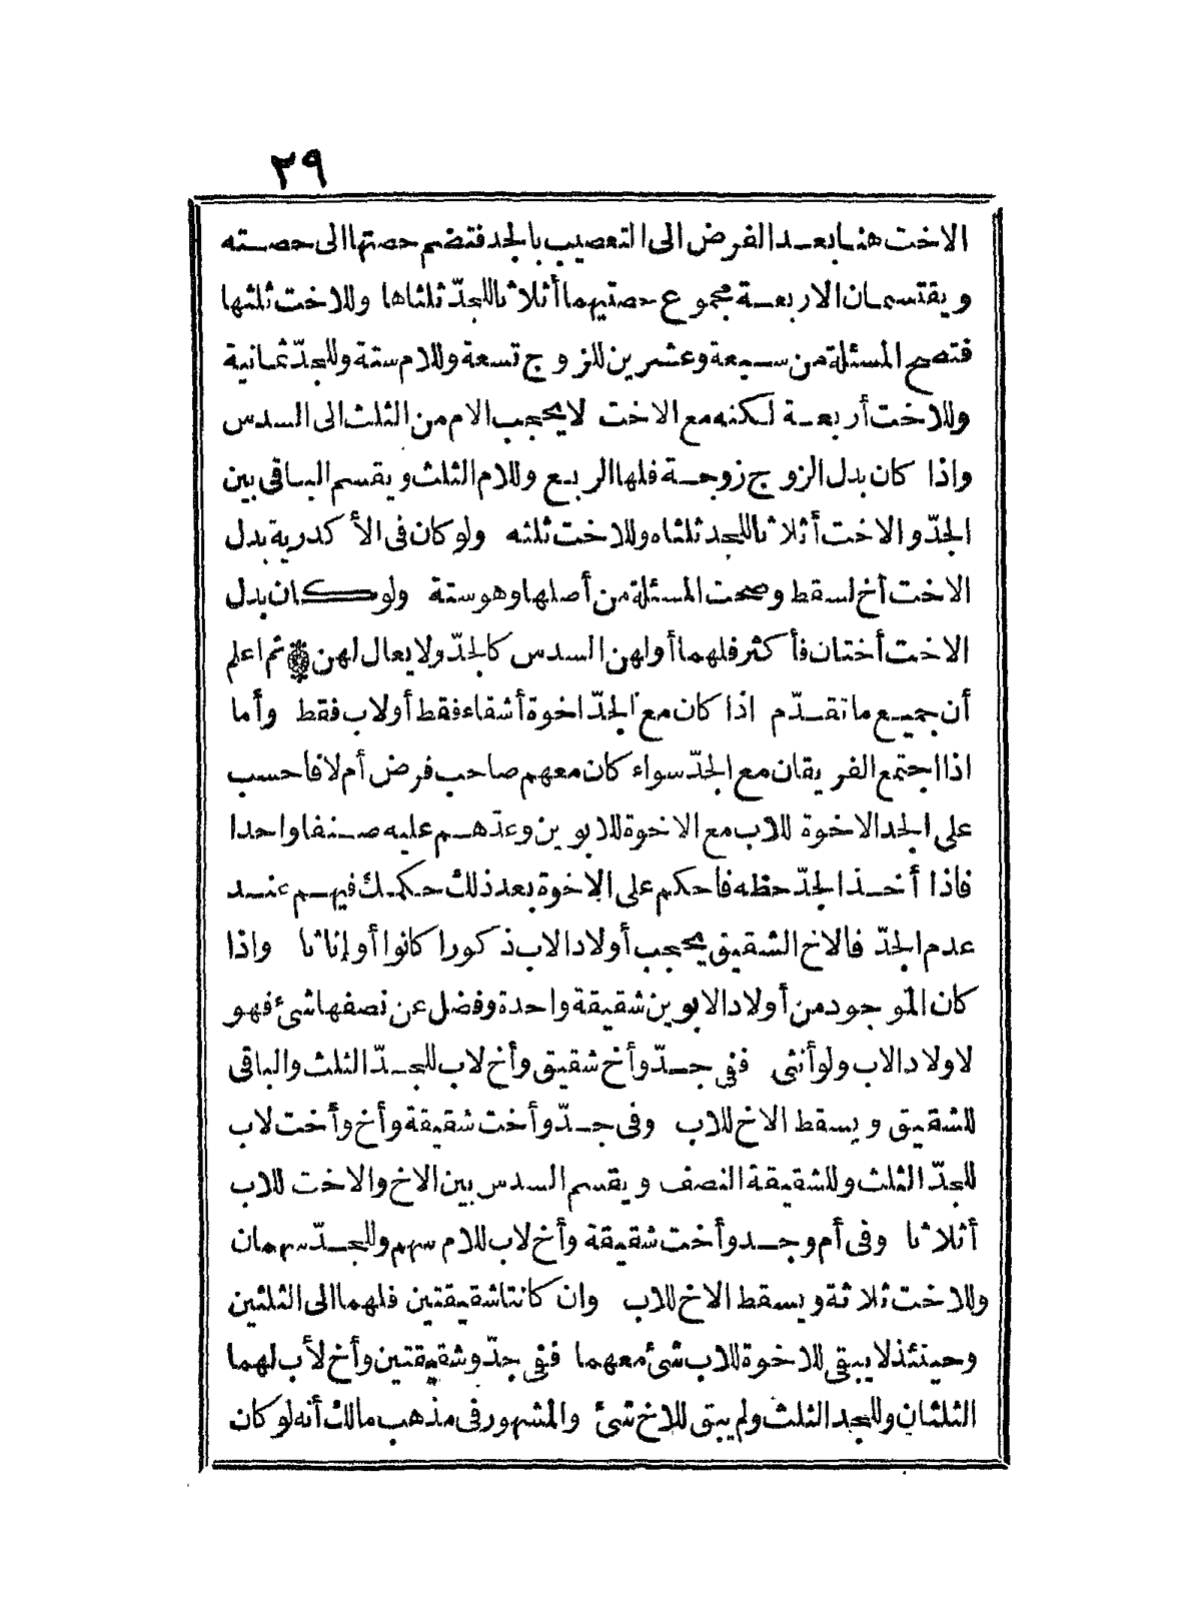 ٢٩
الاخت هنا بعد الفرض الى التعصيب بالجد فتضم حصتها الى حصته
ويقتسمان الاربعة مجموع حصتيهما أثلاثا للجدّ ثلثاها وللاخت ثلثها
فتصح المسئلة من سبعة وعشرين للزوج تسعة وللام ستة وللجدّ ثمانية
وللاخت أربعة لكنه مع الاخت لا يحجب الام من الثلث الى السدس
واذا كان بدل الزوج زوجة فلها الربع وللام الثلث ويقسم الباقى بين
الجدّ والاخت أثلاثا للجد ثلثاه وللاخت ثلثه ولو كان فى الأكدرية بدل
الاخت أخ لسقط وصحت المسئلة من أصلها وهو ستة ولو كان بدل
الاخت أختان فأكثر فلهما أولهن السدس كالجدّ ولا يعال لهن ثم اعلم
أن جميع ما تقدّم اذا كان مع الجدّ اخوة أشقاء فقط أو لاب فقط وأما
اذا اجتمع الفريقان مع الجدّ سواء كان معهم صاحب فرض أم لا فاحسب
على الجد الاخوة للاب مع الاخوة للابوين وعدّهم عليه صنفا واحدا
فاذا أخذ الجدّ حظه فاحكم على الاخوة بعد ذلك حكمك فيهم عند
عدم الجدّ فالاخ الشقيق يحجب أولاد الاب ذكورا كانوا أو إناثا واذا
كان الموجود من أولاد الابوين شقيقة واحدة وفضل عن نصفها شئ فهو
لاولاد الاب ولو أنثى ففى جدّ وأخ شقيق وأخ لاب للجدّ الثلث والباقى
للشقيق ويسقط الاخ للاب وفى جدّ وأخت شقيقة وأخ وأخت لاب
للجدّ الثلث وللشقيقة النصف ويقسم السدس بين الاخ والاخت للاب
أثلاثا وفى أم وجد وأخت شقيقة وأخ لاب للام سهم وللجدّ سهمان
وللاخت ثلاثة ويسقط الاخ للاب وان كانتا شقيقتين فلهما الى الثلثين
وحينئذ لا يبقى للاخوة للاب شئ معهما ففى جدّ وشقيقتين وأخ لأب لهما
الثلثان وللجد الثلث ولم يبق للاخ شئ والمشهور فى مذهب مالك أنه لو كان